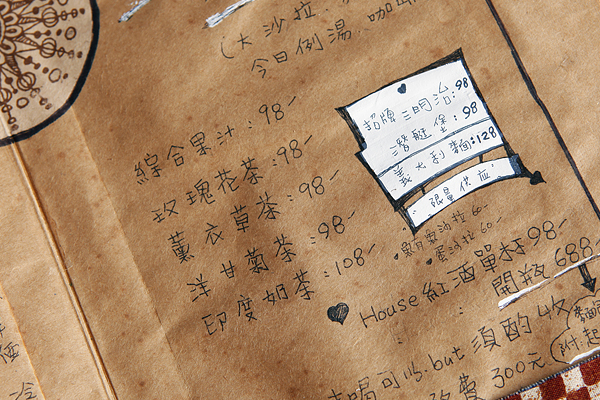 (大沙拉、
今日例湯、咖
綜合果汁:98-
玫瑰花茶:98-
薰衣草茶:98-
洋甘菊茶:98-
印度奶茶:108-
招牌三明治:98
潛艇堡:98
義大利麵:128
限量供應
鮪魚沙拉 60-
蛋沙拉 60-
House紅酒單杯98-
開瓶688-
喝可以.but須酌收
費300元
附:起